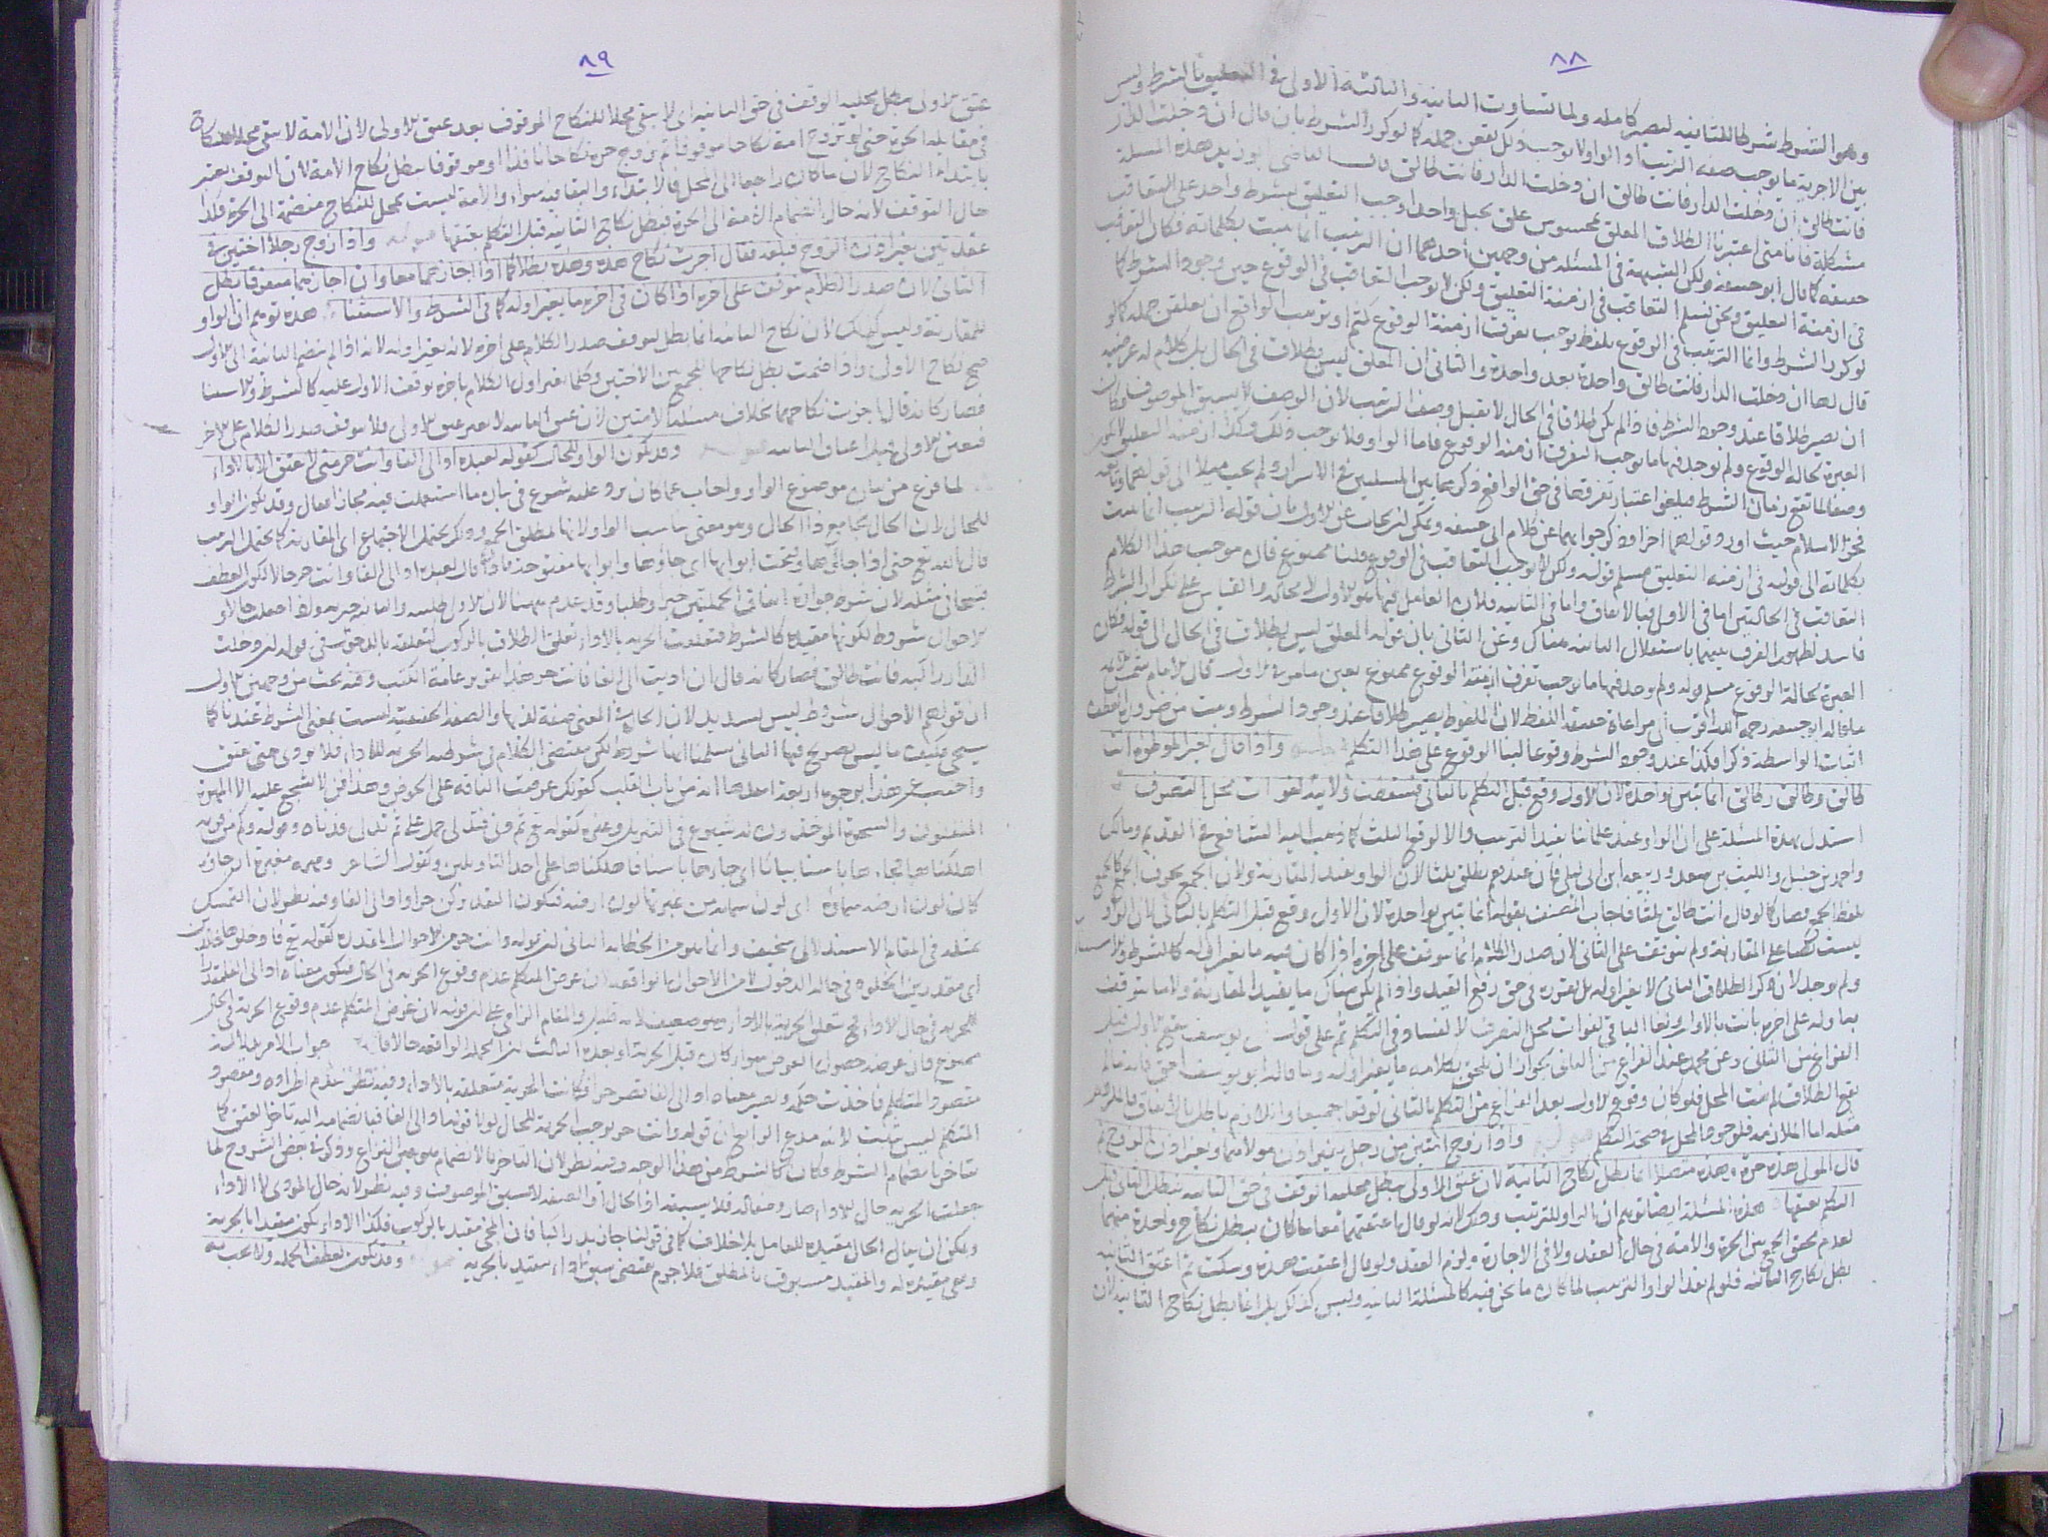 ٨٨
وهو الشرط شرطا للثانية ليصير كاملة ولما تساوت الثانية والثالثة الاولى في التعليق بالشرط وليس
بين الاجزية ما يوجب صفة الترتيب اذ الواو لا توجب ذلك يقعن جملة كما لو كرر الشرط بان قال ان دخلت الدار
فانت طالق ان دخلت الدار فانت طالق ان دخلت الدار فانت طالق قال القاضي ابو زيد هذه المسئلة
مشكلة فانا متى اعتبرنا الطلاق المعلق بمحسوس علق بحبل واحد اوجب التعليق بشرط واحد على التعاقب
حقيقة كما قال ابو حنيفة ولكن الشبهة في المسئلة من وجهين احدهما ان الترتيب انما يثبت بكلماته فكان التعاقب
في ازمنة التعليق ونحن نسلم التعاقب في ازمنة التعليق ولكن لا يوجب التعاقب في الوقوع حين وجود الشرط كما
لو كرر الشرط وانما الترتيب في الوقوع بلفظ يوجب تفرق ازمنة الوقوع كثم او ترتيب الواقع ان يعلقن جملة كما لو
قال لها ان دخلت الدار فانت طالق واحدة بعد واحدة والثاني ان المعلق ليس بطلاق في الحال بل كلام له عرضية
ان يصير طلاقا عند وجود الشرط فاذا لم يكن طلاقا في الحال لا يقبل وصف الترتيب لان الوصف لا يسبق الموصوف وكان
العبرة بحالة الوقوع ولم يوجد فيها ما يوجب التفرق ازمنة الوقوع فاما الواو فلا توجب ذلك وكذا ازمنة التعليق
وصفا لما يقع زمان الشرط فيلغو اعتبار تفرقها في حق الواقع ذكر هاتين المسلتين في الاسرار ولم يجب ميلا الى قولهما وتابعه
فخر الاسلام حيث اورد قولهما اخرا وذكر جوابهما عن كلام ابي حنيفة ويمكن ان يجاب عن الاول بان قوله الترتيب انما يثبت
بكلماته الى قوله في ازمنة التعليق مسلم قوله ولكن لا يوجب التعاقب في الوقوع قلنا ممنوع فان موجب هذا الكلام
التعاقب في الحالتين اما في الاولى فبالاتفاق واما في الثانية فلان العامل فيها هو الاول لا محالة والقياس على تكرار الشرط
فاسد لظهور الفرق بينهما باستقلال الثانية هناك وعن الثاني بان قوله المعلق ليس بطلاق في الحال الى قوله فكان
العبرة بحالة الوقوع مسلم قوله ولم يوجد فيها ما يوجب تفرق ازمنة الوقوع ممنوع بعين ما مر في الاول قال الامام شمس الائمة
ما قاله ابو حنيفة رحمه الله اقرب الى مراعاة حقيقة اللفظ لان الملفوظ يصير طلاقا عند وجود الشرط ومن ضرورة العطف
اثبات الواسطة ذكرا فكذا عند وجود الشرط وقوعا لبنا الوقوع على هذا التكلم واذا قال لغير الموطوءة انت
طالق وطالق وطالق انما تبين بواحدة لان الاول وقع قبل التكلم بالثاني فسقطت ولايته لفوات محل التصرف
استدل بهذه المسئلة على ان الواو عند علمائنا يفيد الترتيب والا لوقع الثلث كما ذهب اليه الشافعي في القديم ومالك
واحمد بن حنبل والليث بن سعد وربيعة وابن ابي ليلى فان عندهم يطلق ثلثا لان الواو يفيد المقارنة ولان الجمع بحرف الجمع كالجمع
بلفظ الجمع فصار كما لو قال انت طالق ثلثا فاجاب المصنف بقوله انما تبين بواحدة لان الاول وقع قبل التكلم بالثاني لان الواو
ليست نصا على المقارنة ولم يتوقف على الثاني لان صدر الكلام انما يتوقف على اخره اذا كان فيه ما يغير اوله كالشرط والاستثناء
ولم يوجد لان ذكر الطلاق الثاني لا يغير اوله بل يقرره في حق رفع القيد واذا لم يكن هناك ما يفيد المقارنة ولا ما يتوقف
بها اوله على اخره بانت بالاول ولغا الباقي لفوات محل التصرف لا لفساد في التكلم ثم على قول ابي يوسف يقع الاول قبل
الفراغ من الثاني وعن محمد عند الفراغ من الثاني لجواز ان يلحق بكلامه ما يغير اوله وما قاله ابو يوسف احق فانه ما لم
يقع الطلاق لم يفت المحل فلو كان وقوع الاول بعد الفراغ من التكلم بالثاني لوقعا جميعا واللازم باطل بالاتفاق فالملزوم
مثله اما الملازمة فلوجود المحل في صحة التكلم واذا زوج امتين من رجل بغير اذن مولاهما وبغير اذن الزوج ثم
قال المولى هذه حرة وهذه متصلا انما يبطل نكاح الثانية لان عتق الاولى يبطل محلية الوقف في حق الثانية فبطل الثاني قبل
التكلم بعتقها هذه المسئلة ايضا توهم ان الواو للترتيب وذلك لانه لو قال اعتقتهما معا ما كان يبطل نكاح واحدة منهما
لعدم تحقق الجمع بين الحرة والامة في حال العقد ولا في الاجازة ويلزم العقد ولو قال اعتقت هذه وسكت ثم اعتق الثانية
بطل نكاح الثانية فلو لم يفد الواو الترتيب لما كان ما نحن فيه كالمسئلة الثانية وليس كذلك بل انما يبطل نكاح الثانية لان
٨٩
عتق الاولى يبطل محلية الوقف في حق الثانية اي لا يبقى محلا للنكاح الموقوف بعد عتق الاولى لان الامة لا يبقى محلا للنكاح
في مقابلة الحرة حتى لو تزوج امة نكاحا موقوفا ثم تزوج حرة نكاحا نافذا او موقوفا يبطل نكاح الامة لان التوقف يعتبر
بابتداء النكاح لان ما كان راجعا الى المحل فالابتداء والبقاء فيه سواء والامة ليست بمحل للنكاح منضمة الى الحرة فكذا
حال التوقف لانه حال انضمام الامة الى الحرة فبطل نكاح الثانية قبل التكلم بعتقها واذا زوج رجلا اختين في
عقدتين بغير اذن الزوج فبلغه فقال اجزت نكاح هذه وهذه بطلا كما اذا اجازهما معا وان اجازهما متفرقا بطل
الثاني لان صدر الكلام يتوقف على اخره اذا كان في اخره ما يغير اوله كما في الشرط والاستثناء هذه توهم ان الواو
للمقارنة وليس كذلك لان نكاح الثانية انما بطل لتوقف صدر الكلام على اخره لانه يغير اوله لانه اذا لم ينضم الثانية الى الاولى
صح نكاح الاولى واذا انضمت بطل نكاحهما للجمع بين الاختين وكلما تغير اول الكلام باخره توقف الاول عليه كالشرط والاستثنا
فصار كانه قال اجزت نكاحهما بخلاف مسئلة الامتين لان عتق الثانية لا يغير عتق الاولى فلا يتوقف صدر الكلام على الاخر
فيعتق الاولى قبل اعتاق الثانية وقد يكون الواو للحال كقوله لعبده اد الي الفا وانت حر حتى لا عتق الا بالاداء
لما فرغ من بيان موضوع الواو واجاب عما كان يرد عليه شرع في بيان ما استعملت فيه مجازا فقال وقد يكون الواو
للحال لان الحال تجامع ذا الحال وهو معنى يناسب الواو لانها لمطلق الجمع وذلك يحتمل الاجتماع اي المقارنة كما يحتمل الترتيب
قال الله تعالى حتى اذا جاؤها وفتحت ابوابها اي جاؤها وابوابها مفتوحة فاذا قال لعبده اد الي الفا وانت حر حالا لكون العطف
قبيحا في مثله لان شرط جوازه اتفاق الجملتين خبرا وطلبا وقد عدم ههنا لان الاول طلبية والثانية خبرية ولذا جعلت حالا و
الاحوال شروط لكونها مقيدة كالشرط فتعلقت الحرية بالاداء تعلق الطلاق بالركوب لتعلقه بالدخول في قوله ان دخلت
الدار راكبة فانت طالق فصار كانه قال ان اديت الي الفا فانت حر هذا تقرير عامة الكتب وفيه بحث من وجهين الاول
ان قولهم الاحوال شروط ليس بسديد لان الحال في المعنى صفة لذيها والصفة الحقيقية ليست بمعنى الشرط عندنا كما
سيجي فكيف ما ليس بصريح فيها الثاني سلمنا انها شروط لكن مقتضى الكلام في شرطية الحرية للاداء فلا يؤدي حتى عتق
واجيب عن هذا بوجوه اربعة احدها انه من باب القلب كقولك عرضت الناقة على الحوض وهذا فن لا يشجع عليه الا المهرة
اهلكناها فجاءها باسنا بياتا اي جاءها باسنا فاهلكناها على احد التاويلين وكقول الشاعر ومهمه مغبرة ارجاؤه
كان لون ارضه سماؤه اي لون سمائه من غبرتها لون ارضه فتكون التقدير كن حرا واد الي الفا وفيه نظر لان التمسك
بمثله في المقام الاستدلالي سخيف الثاني ان قوله وانت حر من الاحوال المقدرة كقوله تعالى فادخلوها خالدين
اي مقدرين الخلود في حالة الدخول لان غرض المتكلم عدم وقوع الحرية في الحال فيكون معناه اد الي الفا مقدرا
للحرية في حال الاداء فح تتعلق الحرية بالاداء لان غرض المتكلم عدم وقوع الحرية في الحال
ممنوع فان غرضه حصول العوض سواء كان قبل الحرية او بعده الثالث ان الجملة الواقعة حالا قائمة مقام جواب الامر بدلالة
مقصود المتكلم فاخذت حكمه وتصير معناه اد الي الفا تصر حرا فكانت الحرية متعلقة بالاداء وفيه نظر
المتكلم ليس بثابت
جعلت الحرية حال الاداء صار وصفا له فلا يسبقه اذ الحال او الصفة لا يسبق الموصوف وفيه نظر لانه حال المؤدي لا الاداء
ويمكن ان يقال الحال مقيدة للعامل بلا خلاف كما في قولنا جاء زيد راكبا فان المجي مقيد بالركوب فكذا الاداء يكون مقيدا بالحرية
وهي مقيدة له والمقيد مسبوق بالمطلق فلا جرم يقتضى سبق اداء مقيد بالحرية وقد يكون لعطف الجملة ولا يجب به